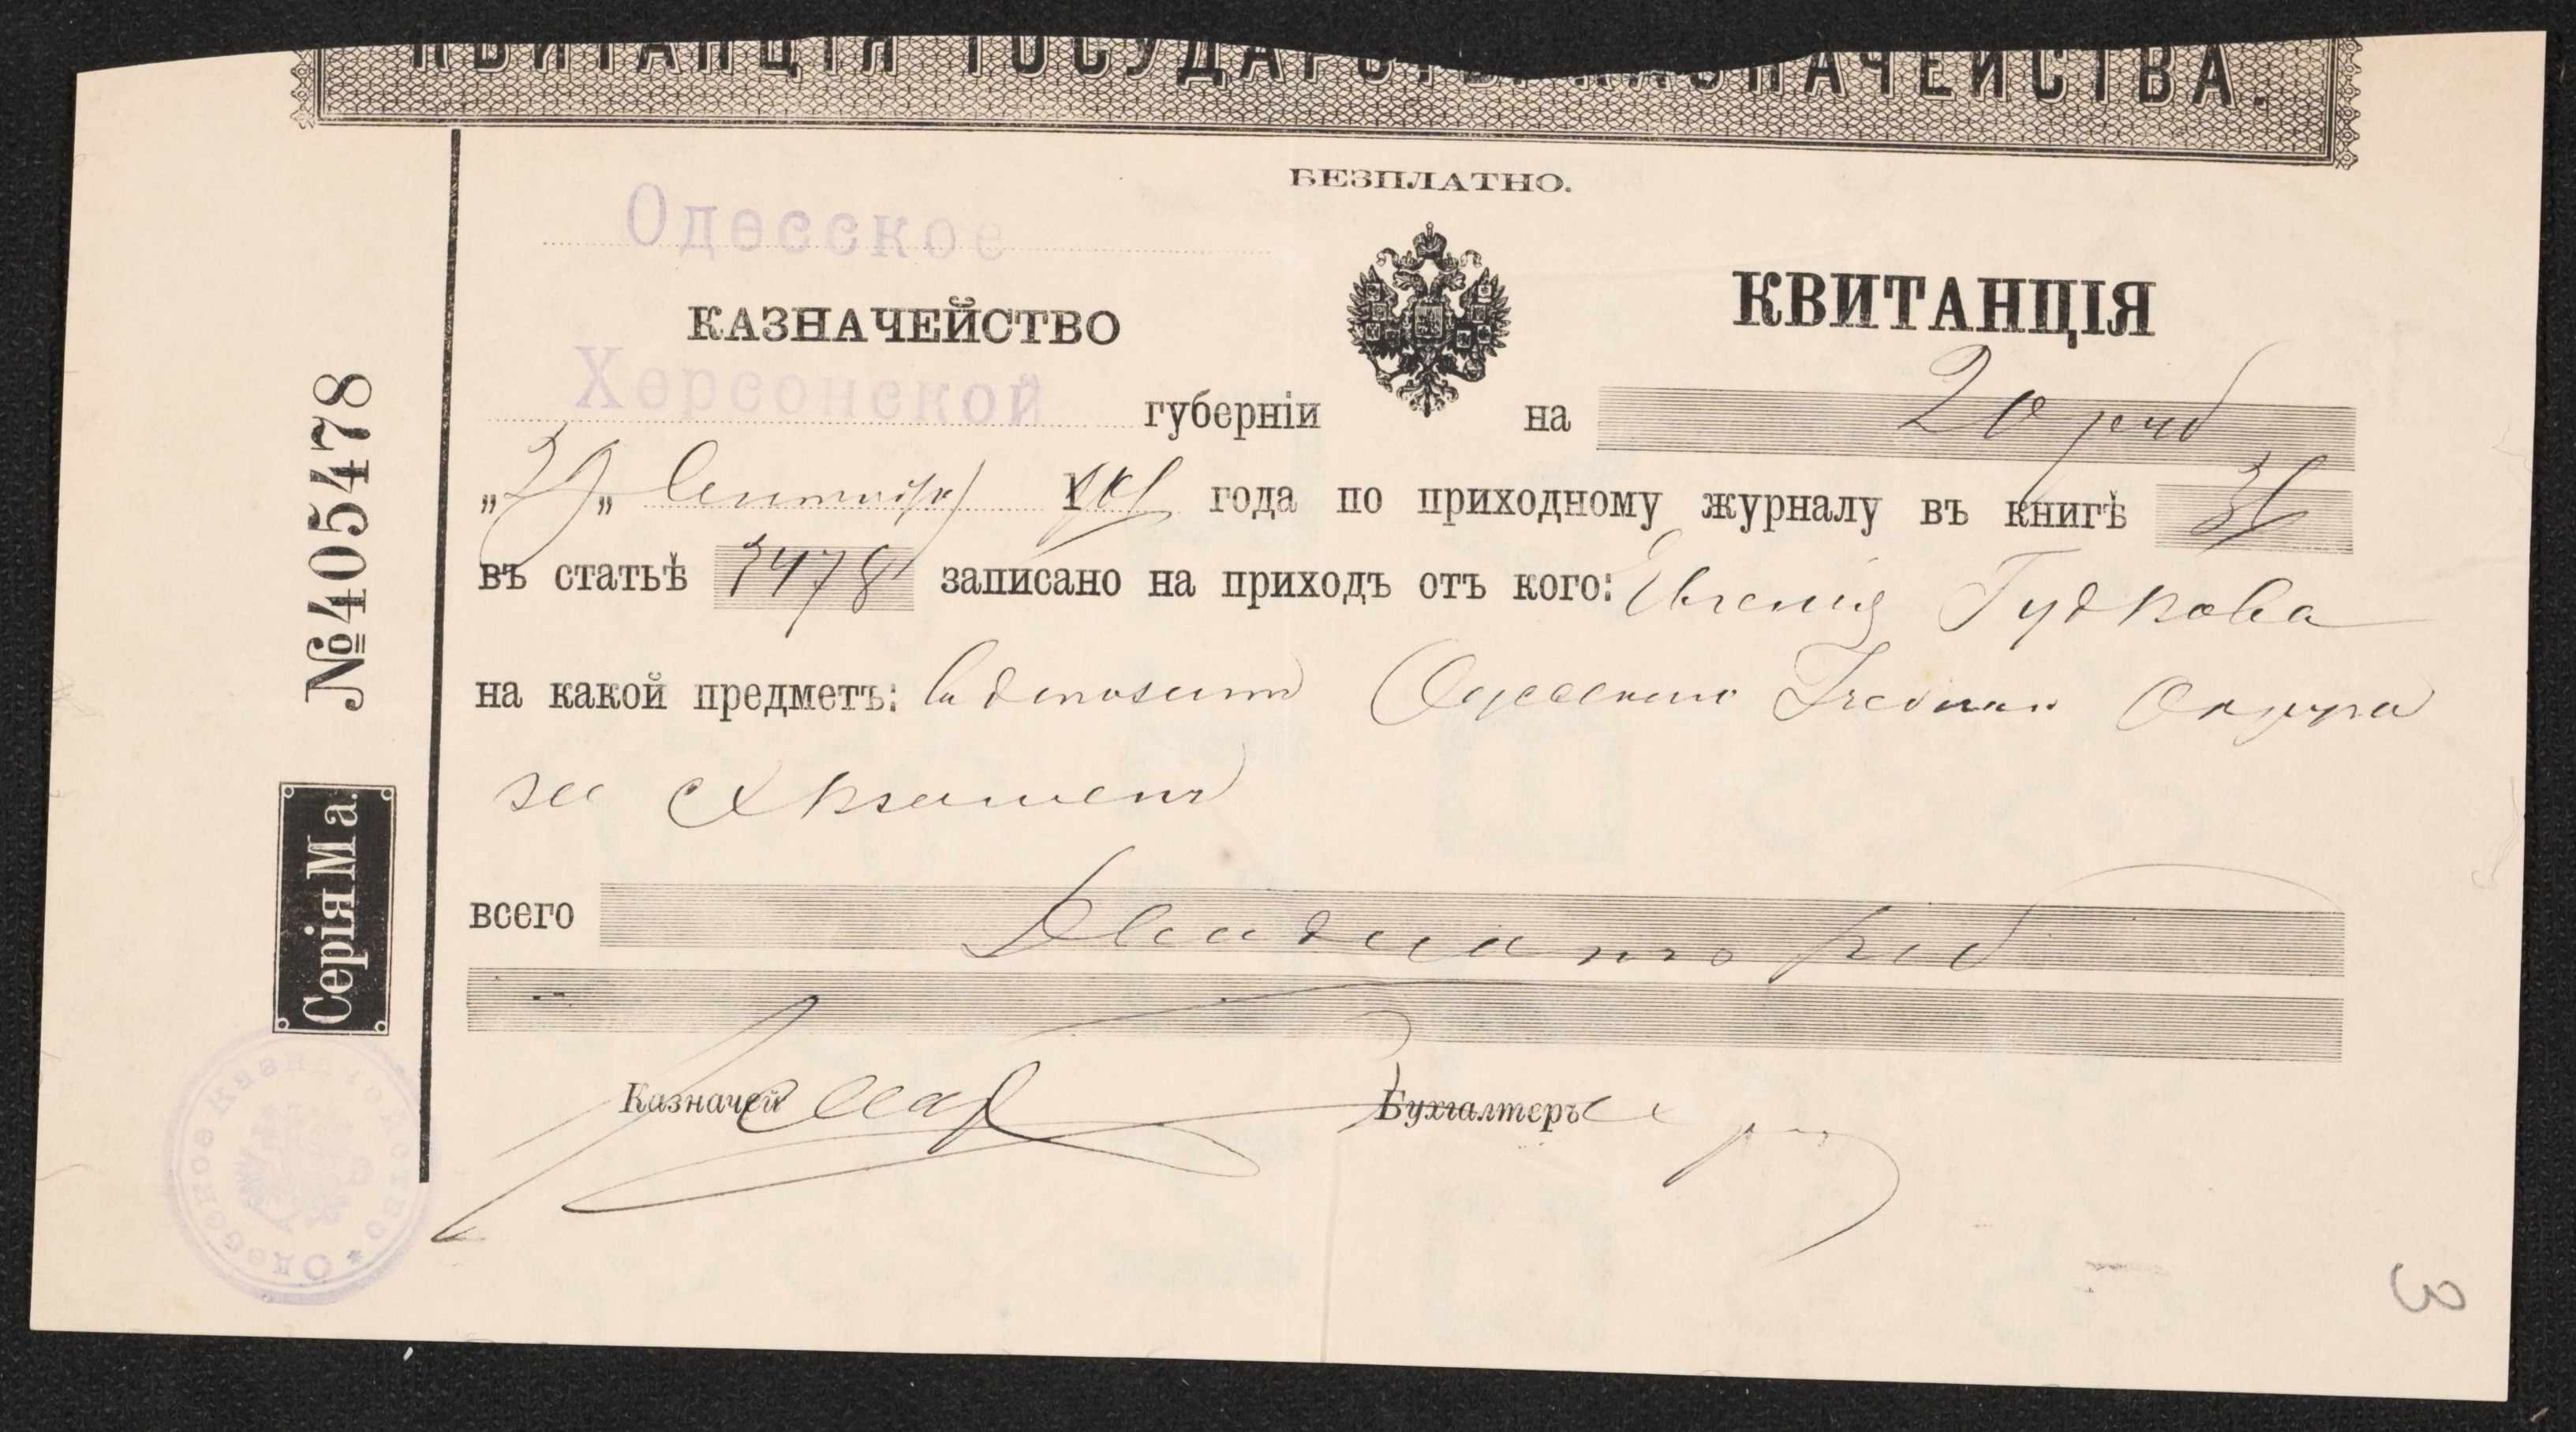 КВИТАНЦІЯ ГОСУДАРСТВ. КАЗНАЧЕЙСТВА.
БЕЗПЛАТНО.
Одесское
КАЗНАЧЕЙСТВО
КВИТАНЦІЯ
Херсонской губерніи
на 20 руб
„29„ Сентября 190 года по приходному журналу въ книгѣ 36
въ статьѣ 3478 записано на приходъ отъ кого: Евгенія Гудкова
на какой предметъ: въ депозитъ Одесскаго Учебнаго Округа
за экзаменъ
всего Двадцать руб
Казначей
Бухгалтеръ
№405478
Серія М а.
Одесское Казначейство *
3